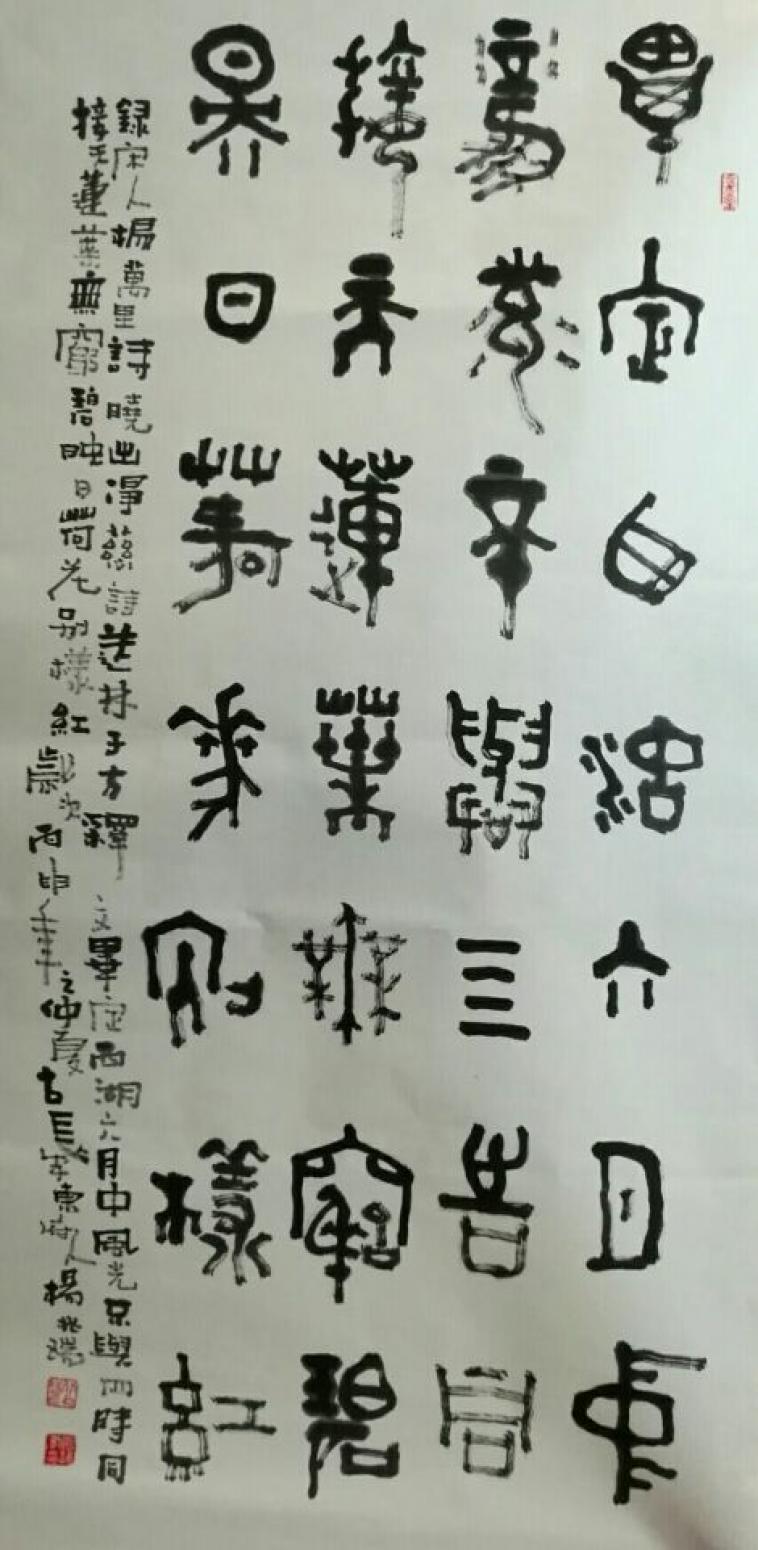 畢定西湖六月中
風光不與四時同
接天蓮葉無窮碧
映日荷花別樣紅
録宋人楊萬里詩曉出淨慈詩送林子方釋文畢定西湖六月中風光只與四時同
接天蓮葉無窮碧映日荷花別樣紅歲次丙申年之仲夏古長安東府人楊兆瑞